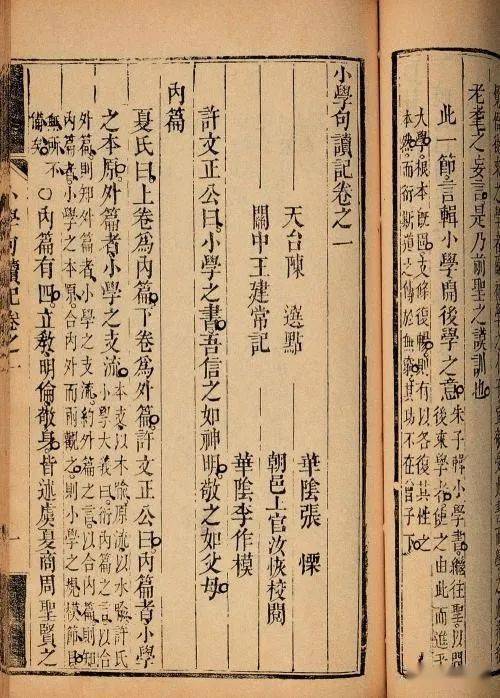 老耄之妄言是乃前聖之謨訓也
此一節言輯小學開後學之意
朱子輯小學書繼往聖以開
後來學者使之由此而進乎
大學根本既固支條復暢則有以各復其性之
本然而衍斯道之傳於無窮其功不在曾子下
小學句讀記卷之一
天台陳 選點
關中王建常記
華陰張 慄
朝邑上官汝恢校閱
華陰李作模
許文正公曰小學之書吾信之如神明敬之如父母
內篇
夏氏曰上卷爲內篇下卷爲外篇許文正公曰內篇者小學
之本原外篇者小學之支流
本支以木喻原流以水喻許氏
小學大義曰衍內篇之言以合
外篇則知外篇者小學之支流約外篇之言以合內篇則知
內篇者小學之本原合內外而兩觀之則小學之規模節目
無所不
備矣
○內篇有四立教明倫敬身皆述虞夏商周聖賢之
小學句讀記卷之一
一